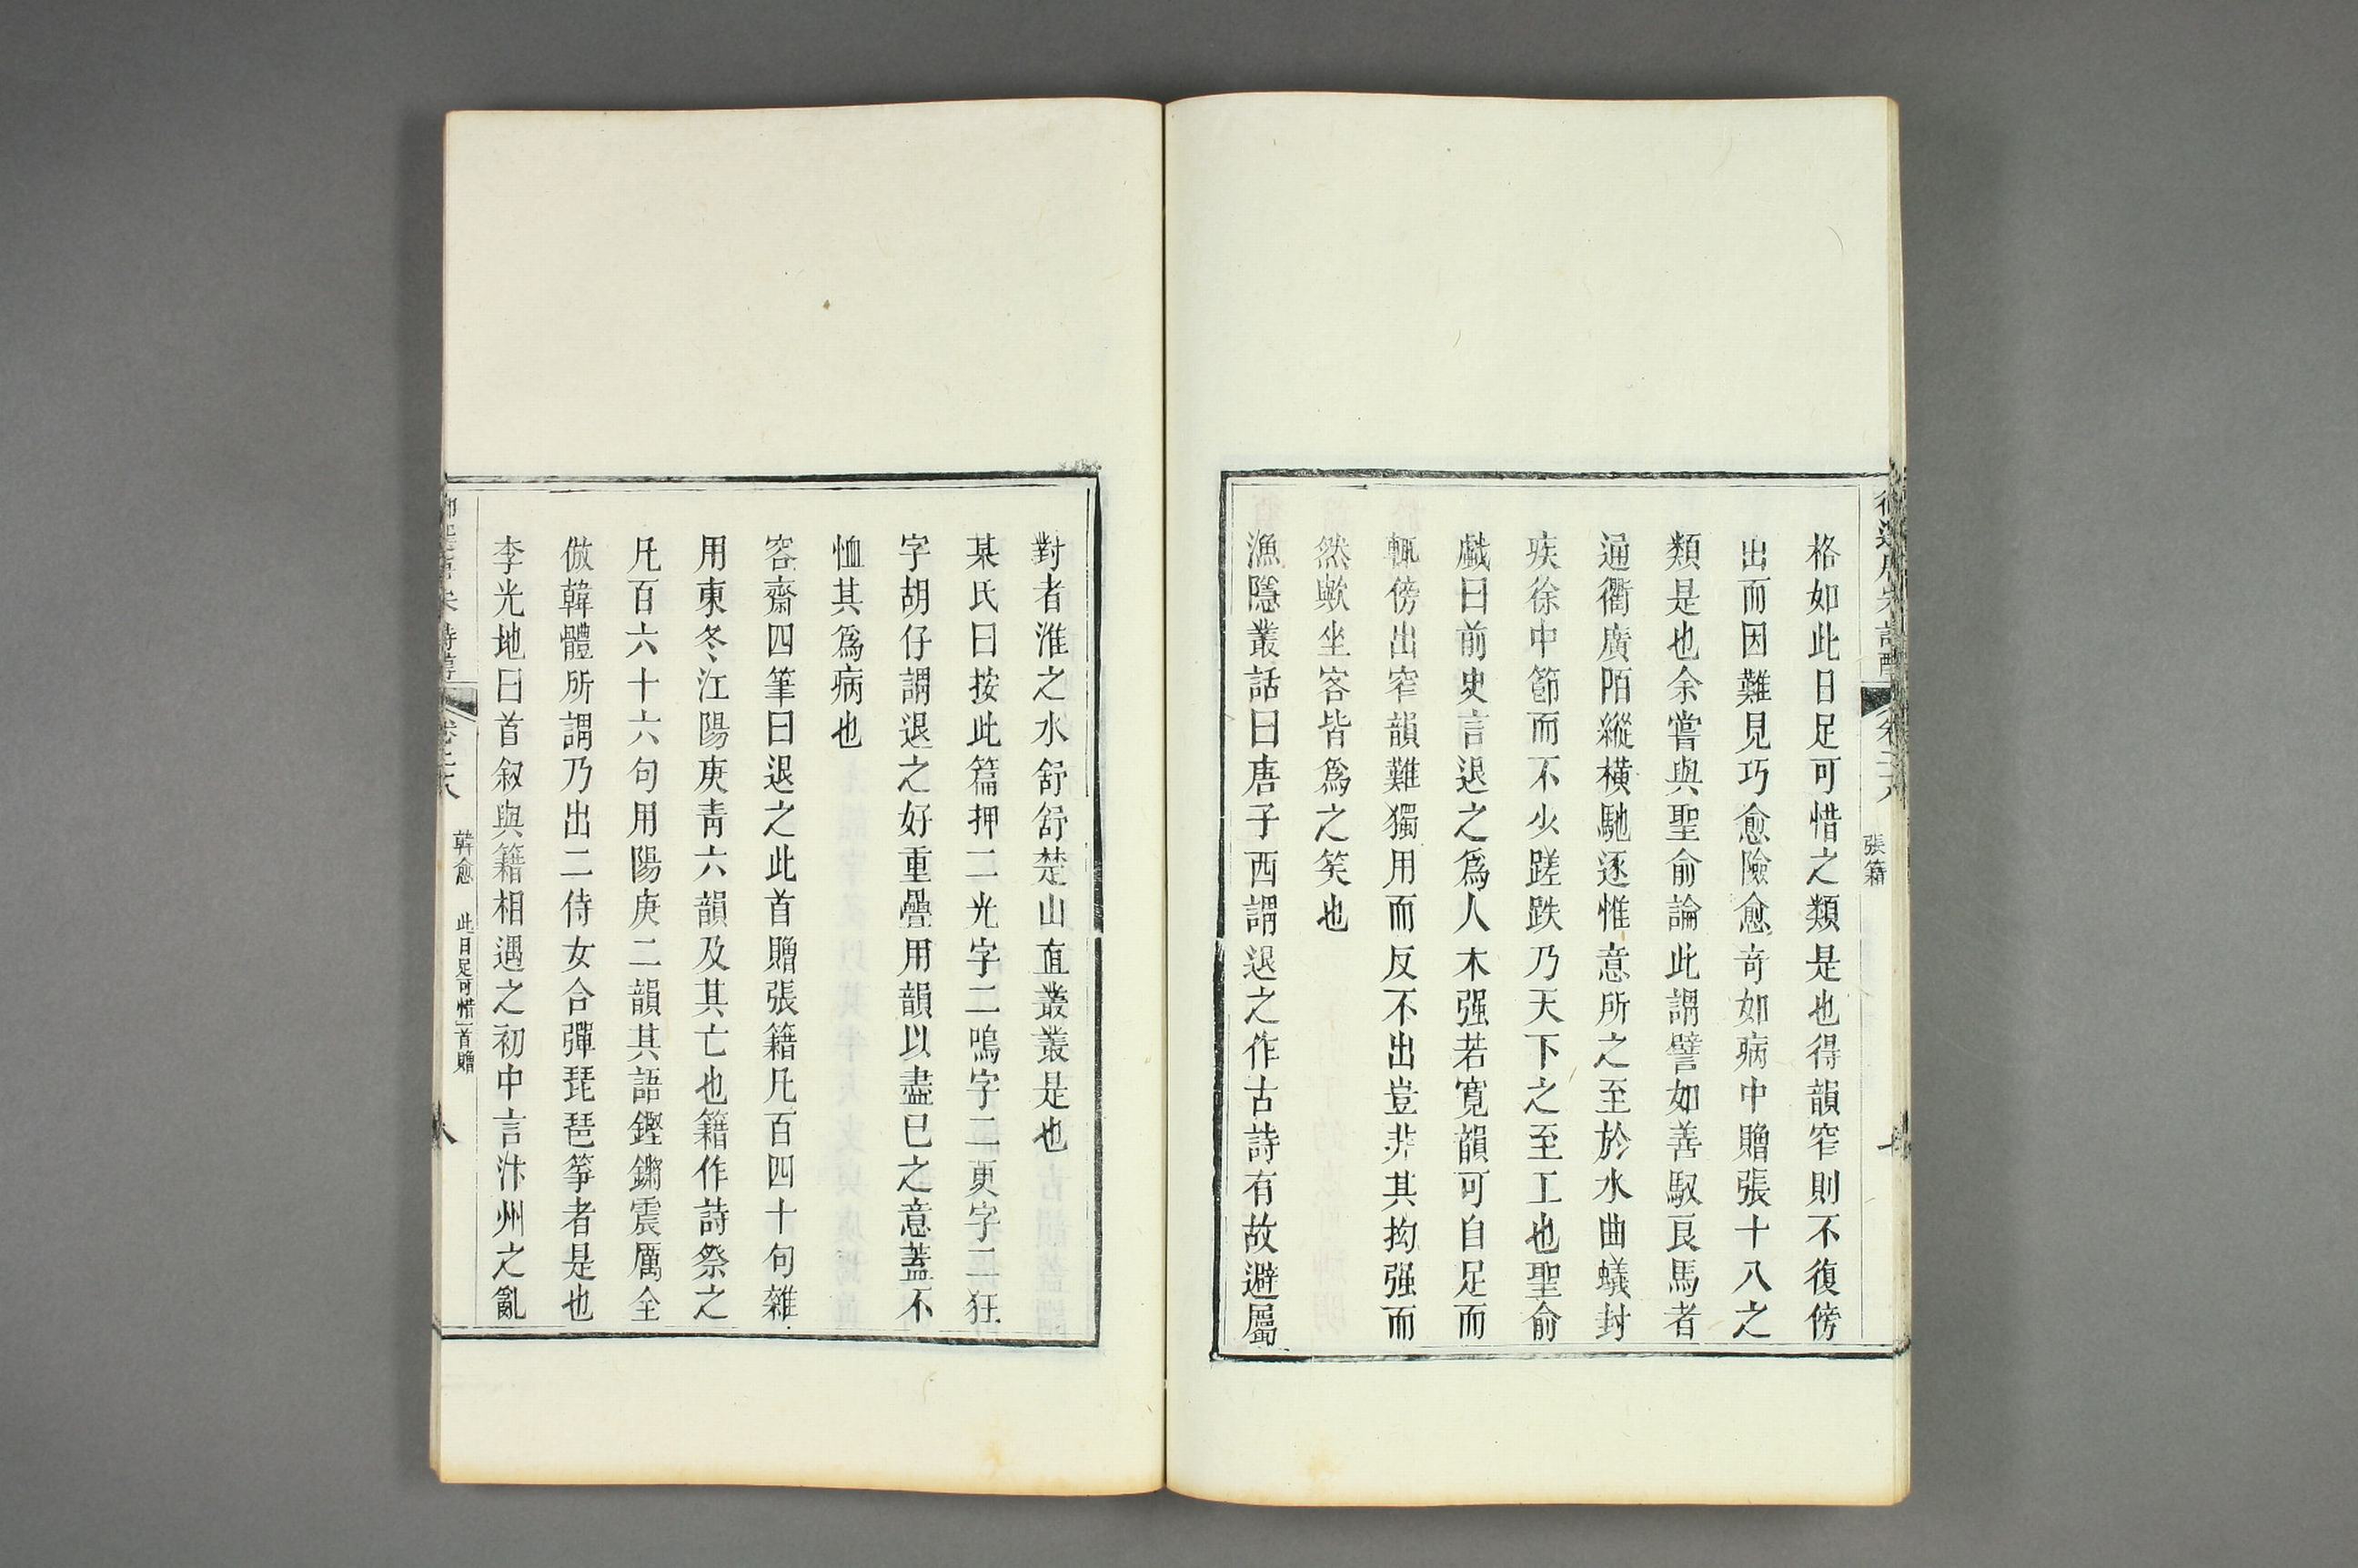 張籍
格如此日足可惜之類是也得韻窄則不復傍
出而因難見巧愈險愈奇如病中贈張十八之
類是也余嘗與聖俞論此謂譬如善馭良馬者
通衢廣陌縱橫馳逐惟意所之至於水曲蟻封
疾徐中節而不少蹉跌乃天下之至工也聖俞
戲曰前史言退之爲人木强若寬韻可自足而
輒傍出窄韻難獨用而反不出豈非其拗强而
然歟坐客皆爲之笑也
漁隱叢話曰唐子西謂退之作古詩有故避屬
對者淮之水舒舒楚山直叢叢是也
某氏曰按此篇押二光字二鳴字二更字二狂
字胡仔謂退之好重疊用韻以盡已之意蓋不
恤其爲病也
容齋四筆曰退之此首贈張籍凡百四十句雜
用東冬江陽庚靑六韻及其亡也籍作詩祭之
凡百六十六句用陽庚二韻其語鏗鏘震厲全
倣韓體所謂乃出二侍女合彈琵琶箏者是也
李光地曰首叙與籍相遇之初中言汴州之亂
韓愈 此日足可惜一首贈